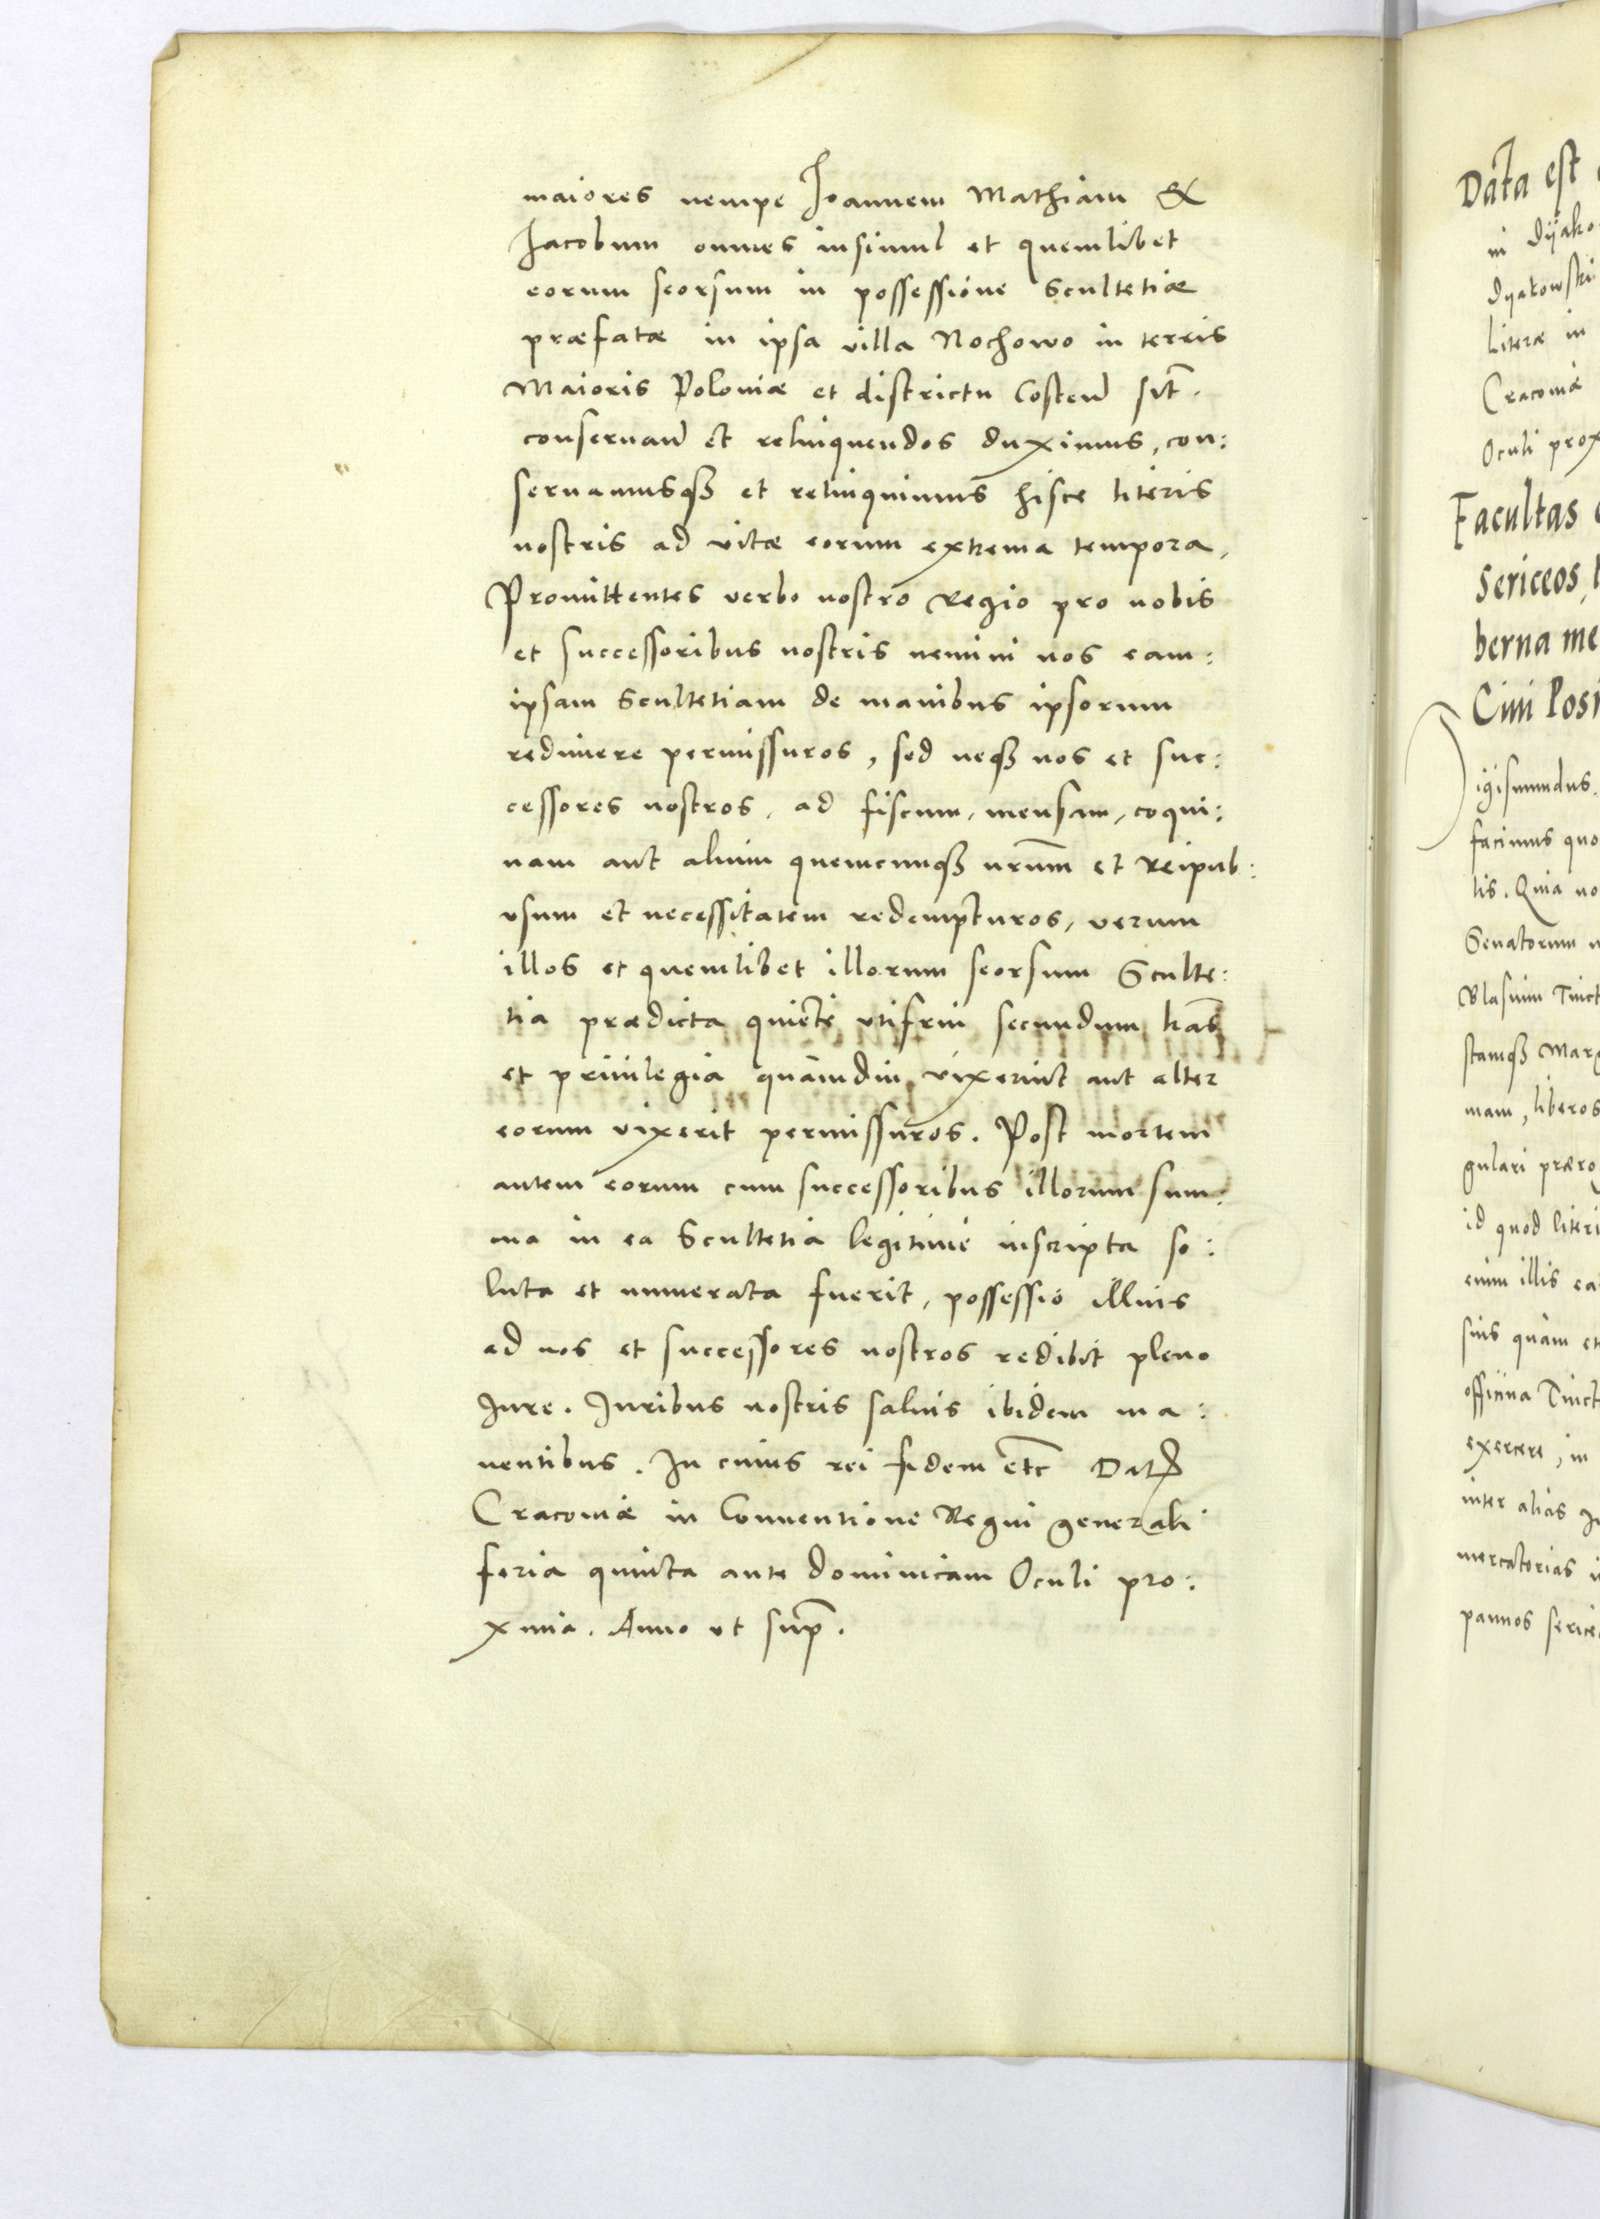 maiores nempe Ioannem Mathiam &
Jacobum omnes insimul et quemlibet
eorum seorsum in possessione Scultetiæ
præfatæ in ipsa villa Nochowo in terris
Maioris Poloniæ et districtu Costen sit.
conseruan et relinquendos duximus, con:
seruamusq3 et relinquimus hisce literis
nostris ad vitæ eorum extrema tempora,
Promittentes verbo nostro Regio pro nobis
et successoribus nostris nemini nos eam:
ipsam Scultetiam de manibus ipsorum
redimere permissuros, sed neq3 nos et suc:
cessores nostros, ad fiscum, mensam, coqui:
nam aut alium quemcunq3 nrum et Reipub:
vsum et necessitatem redempturos, verum
illos et quemlibet illorum seorsum Sculte:
tia prædicta quiete vtifrui secundum lras
et priuilegia quamdiu vixerint aut alter
eorum vixerit permissuros. Post mortem
autem eorum cum successoribus illorum sum:
ma in ea Scultetia legitime inscripta so:
luta et numerata fuerit, possessio illius
ad nos et successores nostros redibit pleno
Jure. Juribus nostris saluis ibidem ma:
nentibus. In cuius rei fidem etc Dat
Cracouiæ in Conuentione Regni generali
feria quinta ante dominicam Oculi pro:
xima. Anno vt sup.
Data est
in Dijako
Dyakowski
literæ in
Cracouiæ
Oculi prox
Facultas
Sericeos,
berna me
Ciui Pos
igismundus.
facimus quo
tis. Quia no
Senatorum
Blasium Tinct
stamq3 Marg
mam, liberos
gulari prærog
id quod literi
enim illis ea
suis quam et
officina Tinct
exercere, in
inter alias
mercatorias
pannos serice